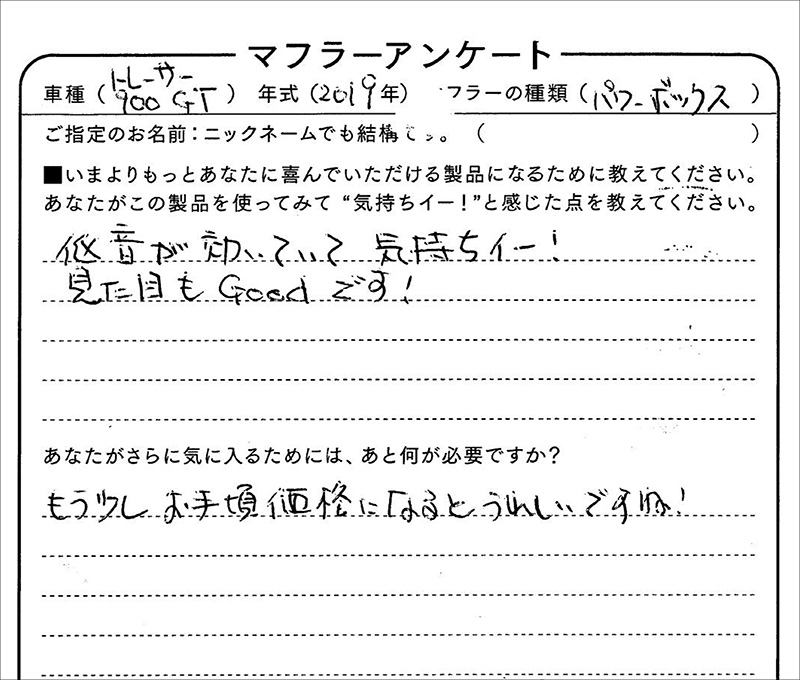 マフラーアンケート
車種（トレーサー900 GT） 年式（2019年） フラーの種類（パワーボックス）
ご指定のお名前：ニックネームでも結構です。（ ）
■いまよりもっとあなたに喜んでいただける製品になるために教えてください。
あなたがこの製品を使ってみて“気持ちイー！”と感じた点を教えてください。
低音が効いていて 気持ちイー！
見た目も Good です！
あなたがさらに気に入るためには、あと何が必要ですか？
もう少し お手頃価格になるとうれしいですね！